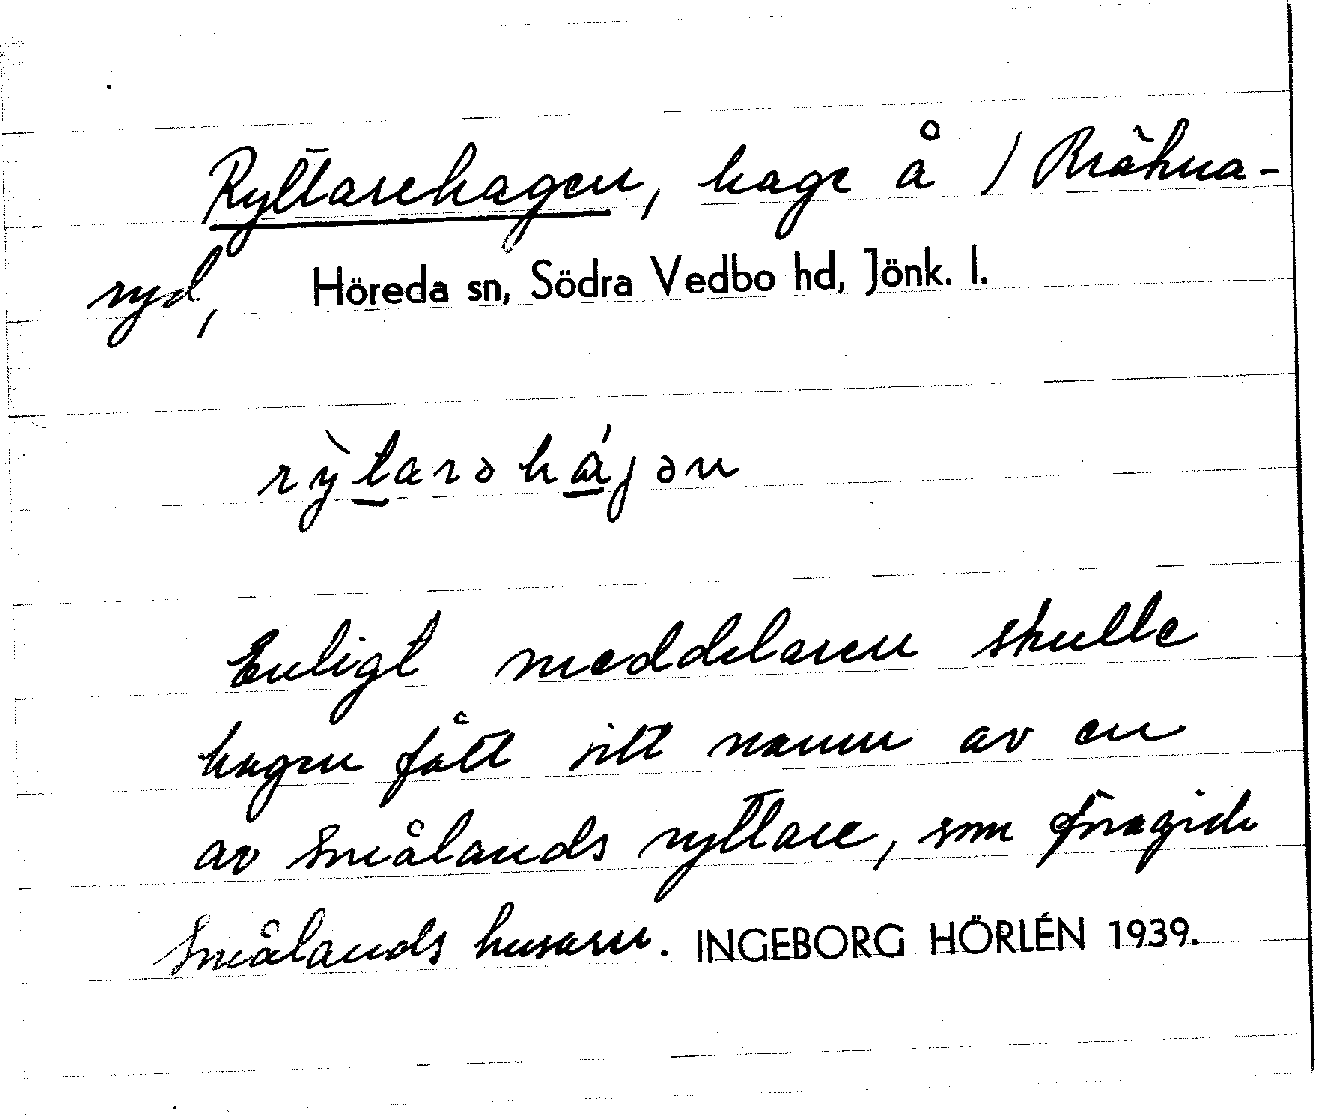 Ryttarehagen, hage å / Bråhna-
ryd, Höreda sn, Södra Vedbo hd, Jönk. l.
rỳtarəhájən
Enligt meddelaren skulle
hagen fått sitt namn av en
av Smålands ryttare, som föregick
Smålands husarer. INGEBORG HÖRLÉN 1939.